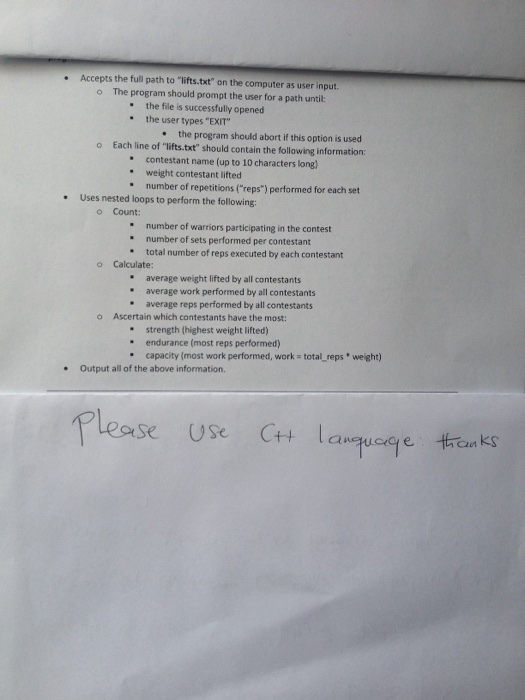 • Accepts the full path to "lifts.txt" on the computer as user input.
o The program should prompt the user for a path until:
▪ the file is successfully opened
▪ the user types "EXIT"
• the program should abort if this option is used
o Each line of "lifts.txt" should contain the following information:
▪ contestant name (up to 10 characters long)
▪ weight contestant lifted
▪ number of repetitions ("reps") performed for each set
• Uses nested loops to perform the following:
o Count:
▪ number of warriors participating in the contest
▪ number of sets performed per contestant
▪ total number of reps executed by each contestant
o Calculate:
▪ average weight lifted by all contestants
▪ average work performed by all contestants
▪ average reps performed by all contestants
o Ascertain which contestants have the most:
▪ strength (highest weight lifted)
▪ endurance (most reps performed)
▪ capacity (most work performed, work = total_reps * weight)
• Output all of the above information.
Please use C++ language thanks